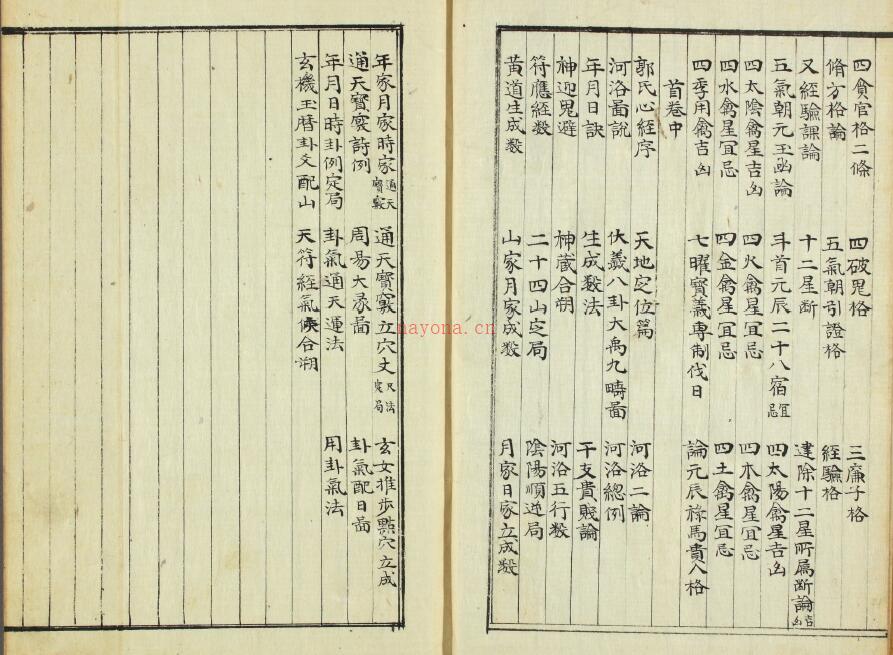 四貪官格二條　四破鬼格　三廉子格
脩方格論　五氣朝引證格　經驗格
又經驗課論　十二星斷　建除十二星所屬斷論吉凶
五氣朝元玉凾論　斗首元辰二十八宿宜忌　四太陽禽星吉凶
四太陰禽星吉凶　四火禽星宜忌　四木禽星宜忌
四水禽星宜忌　四金禽星宜忌　四土禽星宜忌
四季用禽吉凶　七曜寶義專制伐日　論元辰祿馬貴人格
首卷中
郭氏心經序　天地定位篇　河洛二論
河洛啚說　伏羲八卦大禹九疇啚　河洛總例
年月日訣　生成數法　干支貴賤論
神迎鬼避　神藏合朔　河洛五行數
符應經數　二十四山定局　陰陽順逆局
黃道生成數　山家月家成數　月家日家立成數
年家月家時家通天寶竅　通天寶竅立穴丈尺法定局　玄女推步點穴立成
通天寶竅詩例　周易大彖啚　卦氣配日啚
年月日時卦例定局　卦氣通天運法　用卦氣法
玄機玉曆卦爻配山　天符經氣候合朔
nayona.cn